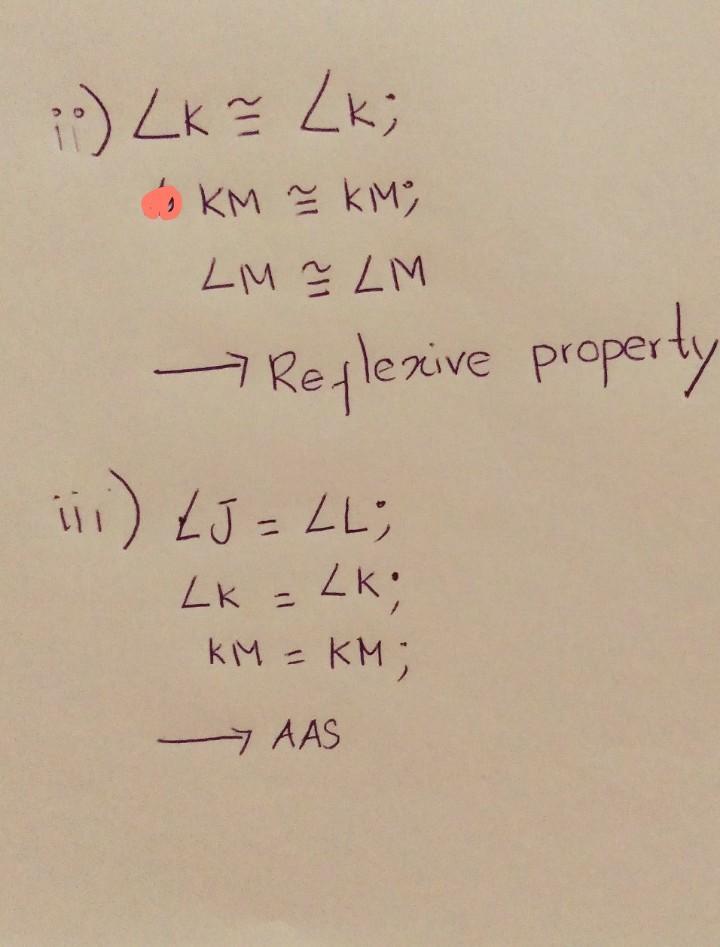 ii) ∠K ≅ ∠K;
KM ≅ KM;
∠M ≅ ∠M
→ Reflexive property
iii) ∠J = ∠L;
∠K = ∠K;
KM = KM;
→ AAS